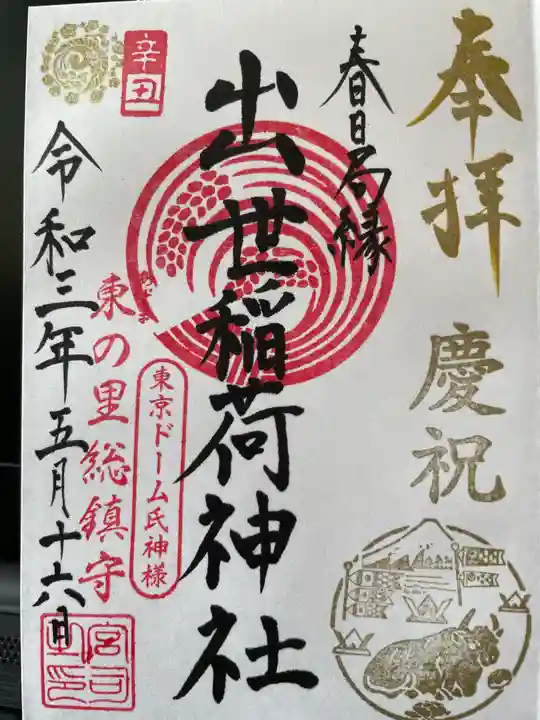 奉拝
慶祝
春日局縁
出世稲荷神社
東京ドーム氏神様
東の里総鎮守
辛丑
令和三年五月十六日